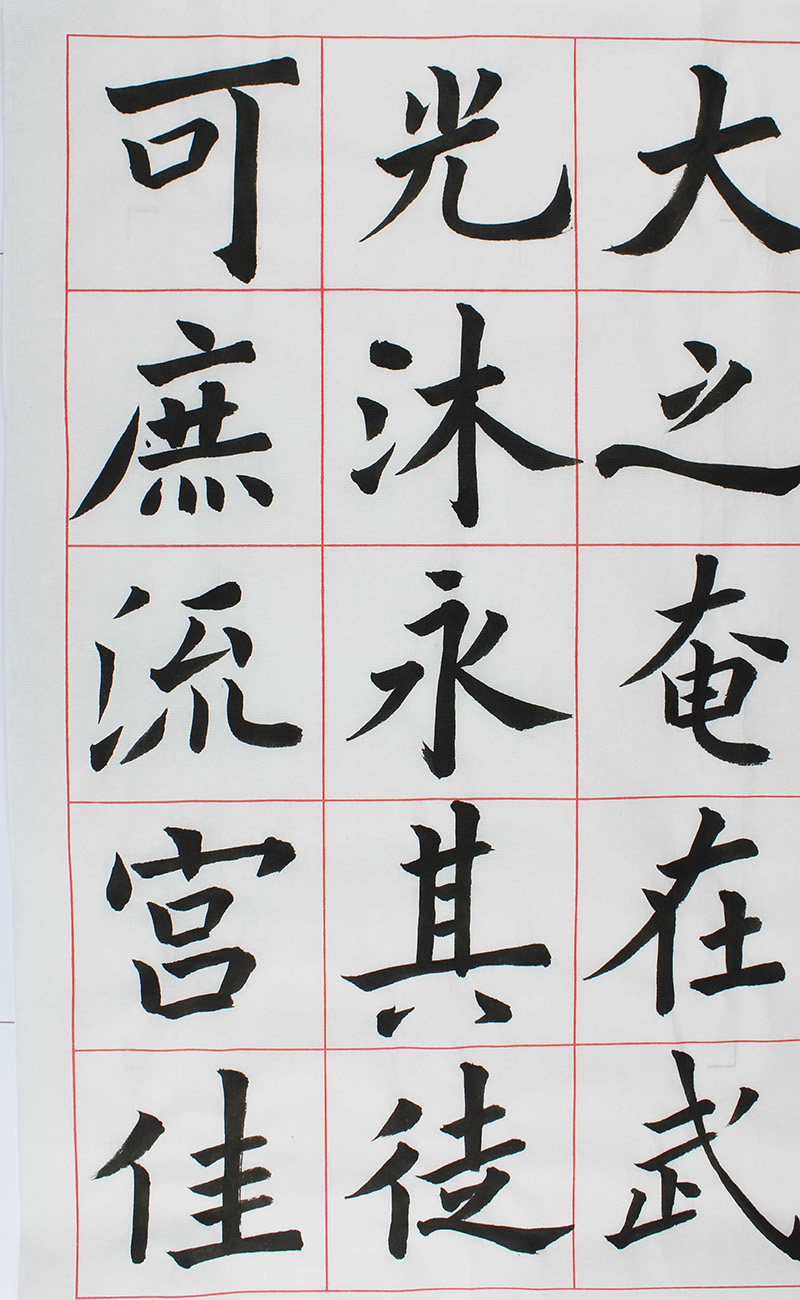 大之奄在武
光沐永其徒
可庶流宫佳